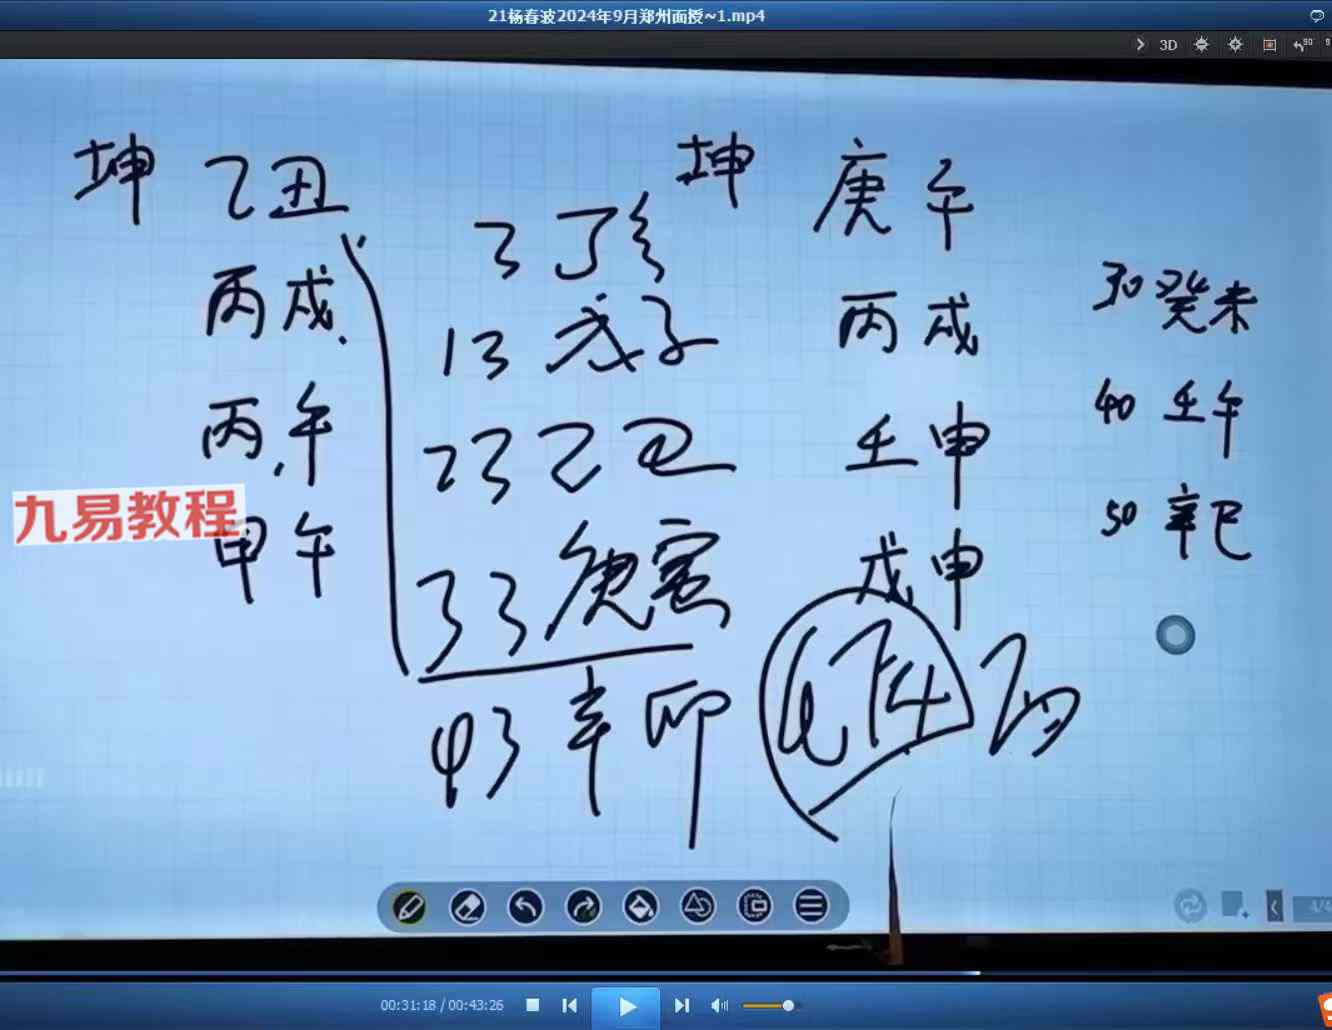 21杨春波2024年9月郑州面授~1.mp4
3D
90
坤 乙丑
丙戌
丙午
甲午
九易教程
3 丁亥
13 戊子
23 己丑
33 庚寅
43 辛卯
坤 庚午
丙戌
壬申
戊申
30 癸未
40 壬午
50 辛巳
4/4
00:31:18 / 00:43:26